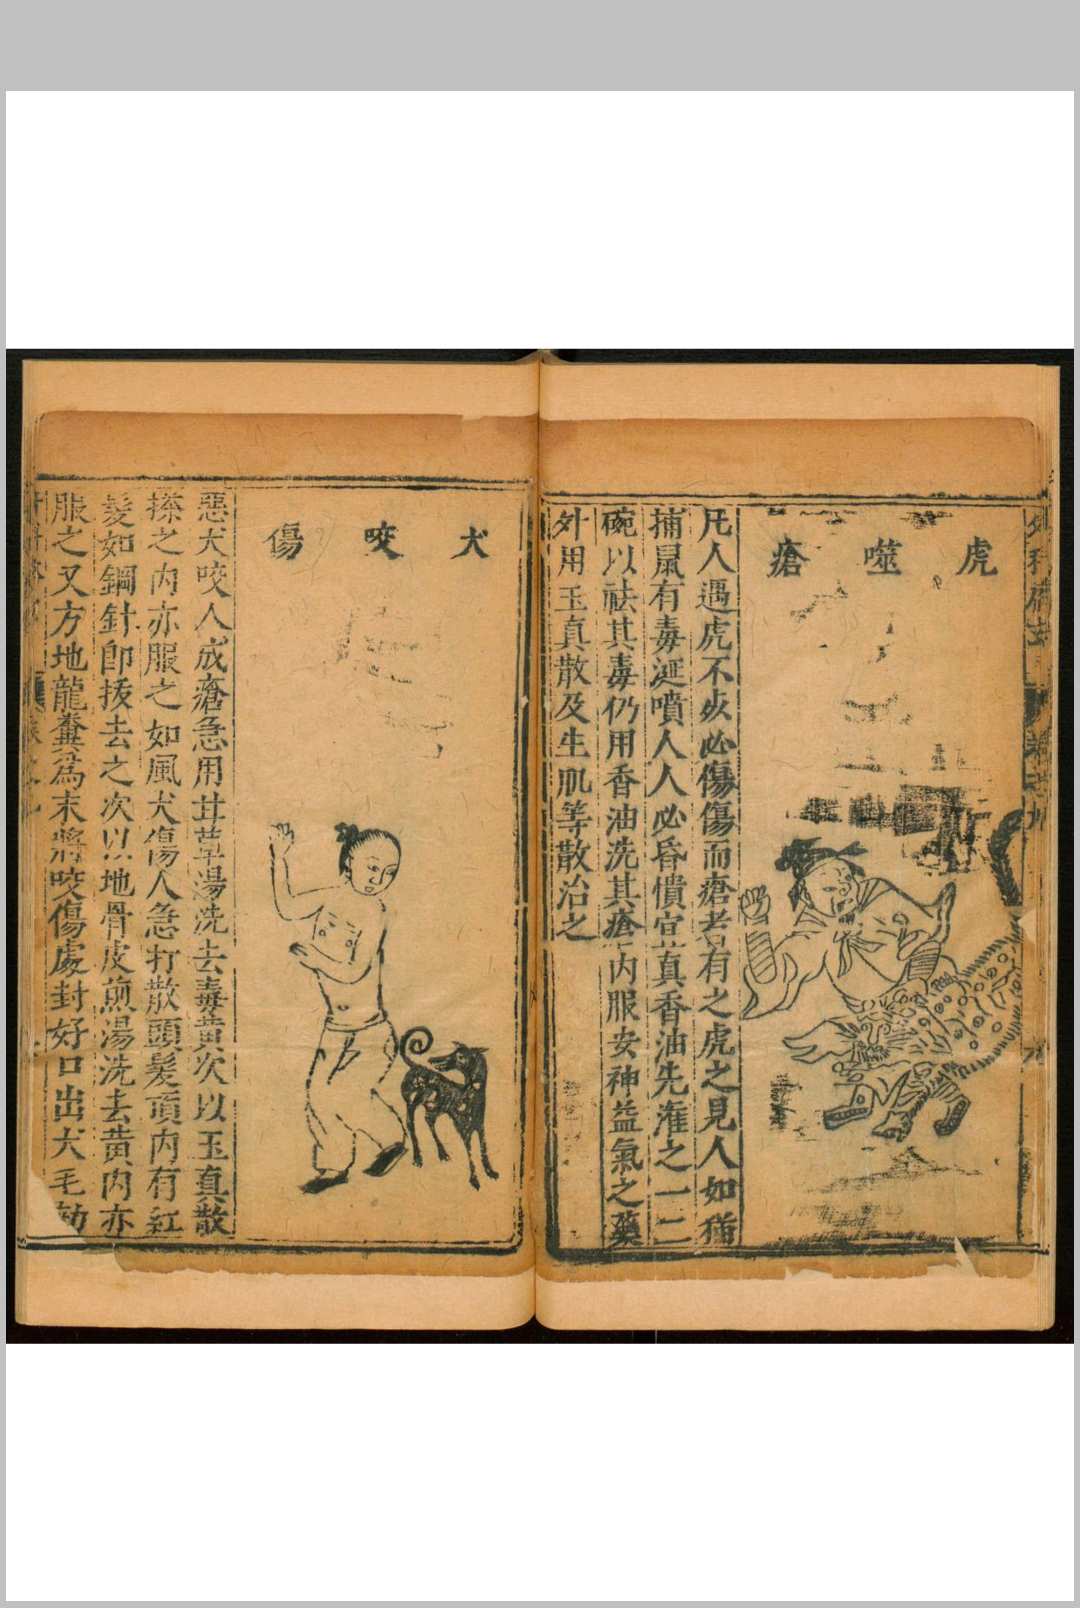 虎噬瘡
凡人遇虎不死必傷傷而瘡者有之虎之見人如猫
捕鼠有毒涎噴人人必昏憒宜真香油先灌之一二
碗以祛其毒仍用香油洗其瘡內服安神益氣之藥
外用玉真散及生肌等散治之
犬咬傷
惡犬咬人成瘡急用甘草湯洗去毒黃次以玉真散
搽之內亦服之如風犬傷人急打散頭髮頂內有紅
髮如鋼針卽拔去之次以地骨皮煎湯洗去黃內亦
服之又方地龍糞為末將咬傷處封好口出犬毛